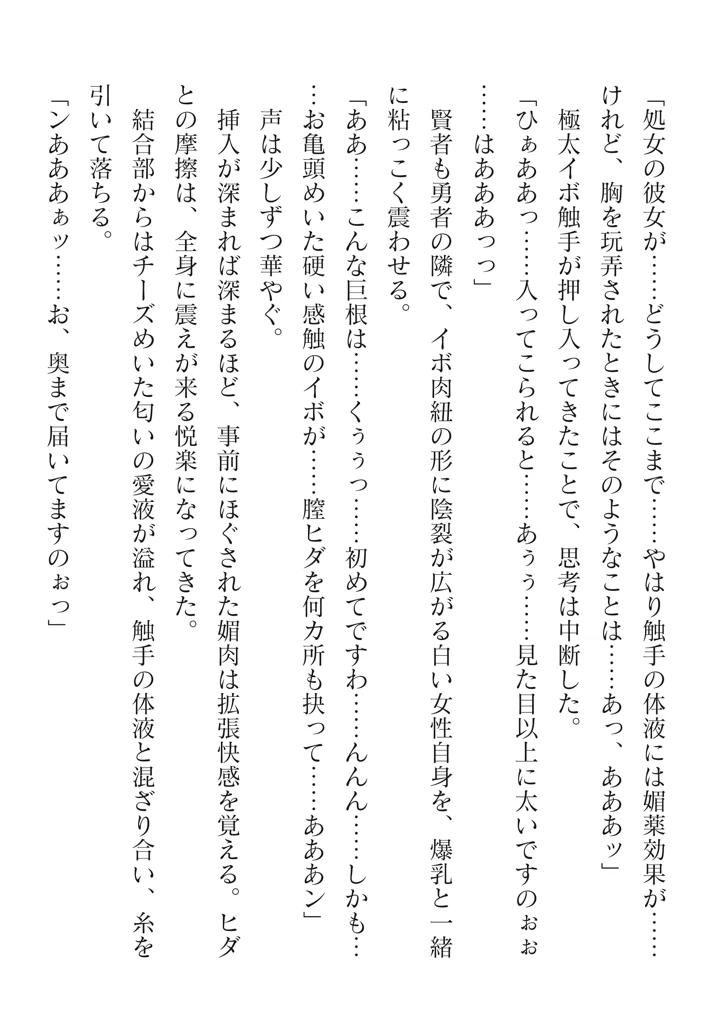 「処女の彼女が……どうしてここまで……やはり触手の体液には媚薬効果が……
けれど、胸を玩弄されたときにはそのようなことは……あっ、あああッ」
　極太イボ触手が押し入ってきたことで、思考は中断した。
「ひぁああっ……入ってこられると……あぅぅ……見た目以上に太いですのぉぉ
……はああぁっっ」
　賢者も勇者の隣で、イボ肉紐の形に陰裂が広がる白い女性自身を、爆乳と一緒
に粘っこく震わせる。
「ああ……こんな巨根は……くぅぅっ……初めてですわ……んんん……しかも…
…お亀頭めいた硬い感触のイボが……膣ヒダを何カ所も抉って……あああン」
　声は少しずつ華やぐ。
　挿入が深まれば深まるほど、事前にほぐされた媚肉は拡張快感を覚える。ヒダ
との摩擦は、全身に震えが来る悦楽になってきた。
　結合部からはチーズめいた匂いの愛液が溢れ、触手の体液と混ざり合い、糸を
引いて落ちる。
「ンあああぁッ……お、奥まで届いてますのぉっ」